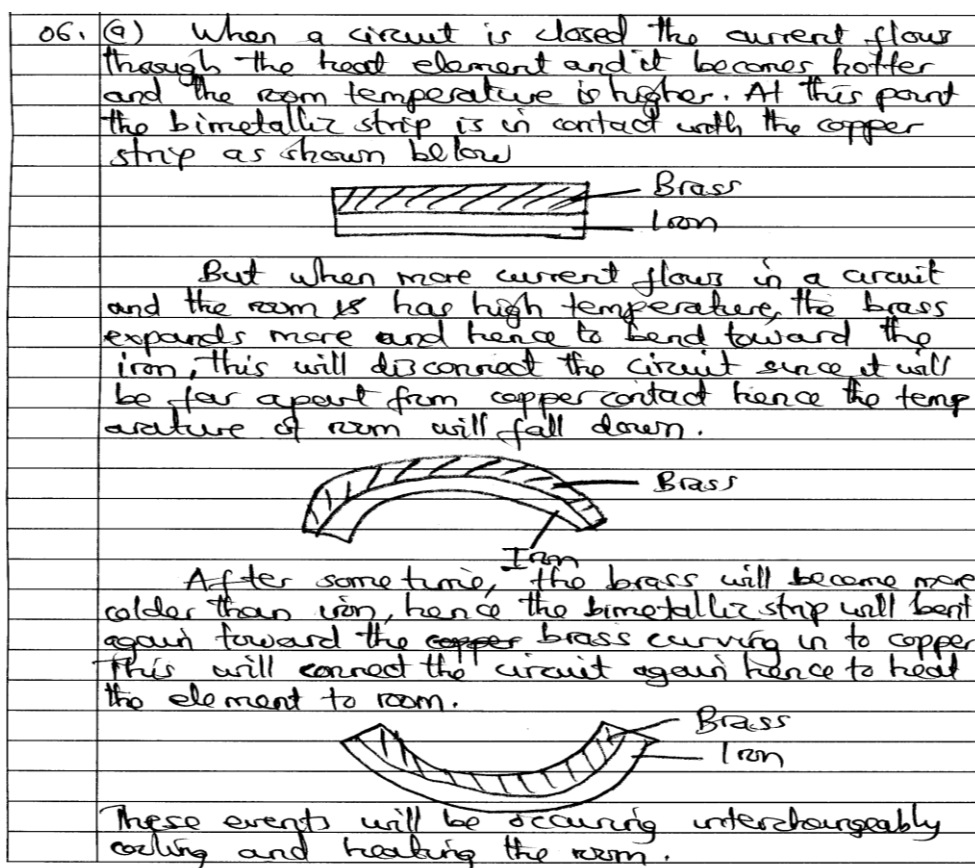 06. (a) When a circuit is closed the current flows
through the heat element and it becomes hotter
and the room temperature is higher. At this point
the bimetallic strip is in contact with the copper
strip as shown below
Brass
Iron
But when more current flows in a circuit
and the room is has high temperature, the brass
expands more and hence to bend toward the
iron, this will disconnect the circuit since it will
be far apart from copper contact hence the temp
arature of room will fall down.
Brass
Iron
After some time, the brass will become more
colder than iron, hence the bimetallic strip will bent
again toward the copper brass curving in to copper
This will connect the circuit again hence to heat
the element to room.
Brass
Iron
These events will be occuring interchangeably
cooling and heating the room.